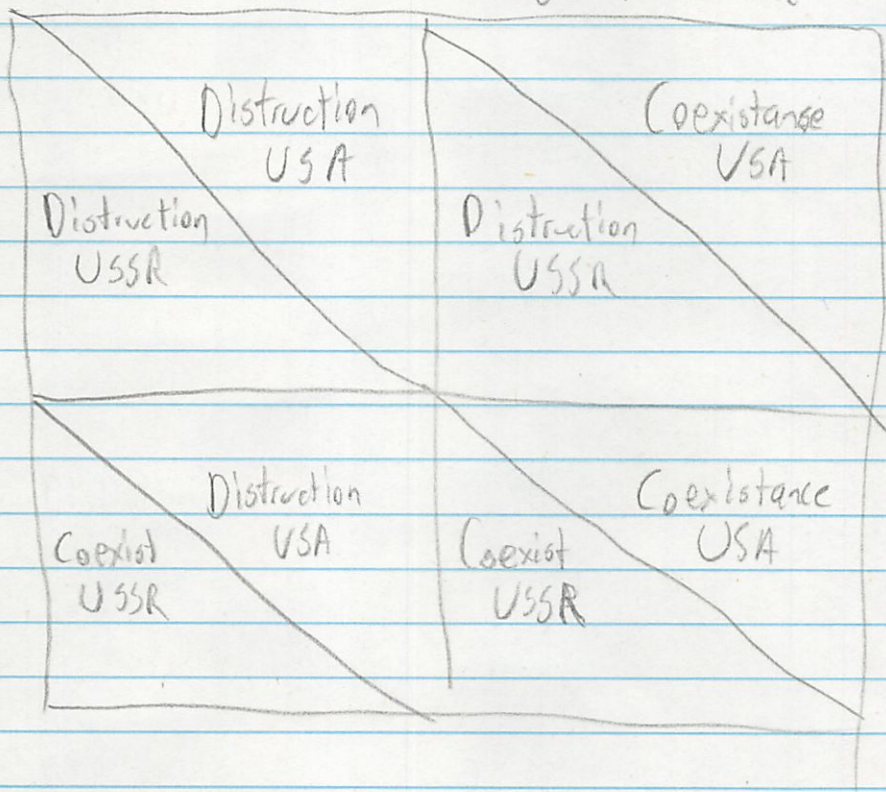 Distruction
USA
Distruction
USSR
Coexistanse
USA
Distruction
USSR
Distruction
USA
Coexist
USSR
Coexistance
USA
Coexist
USSR